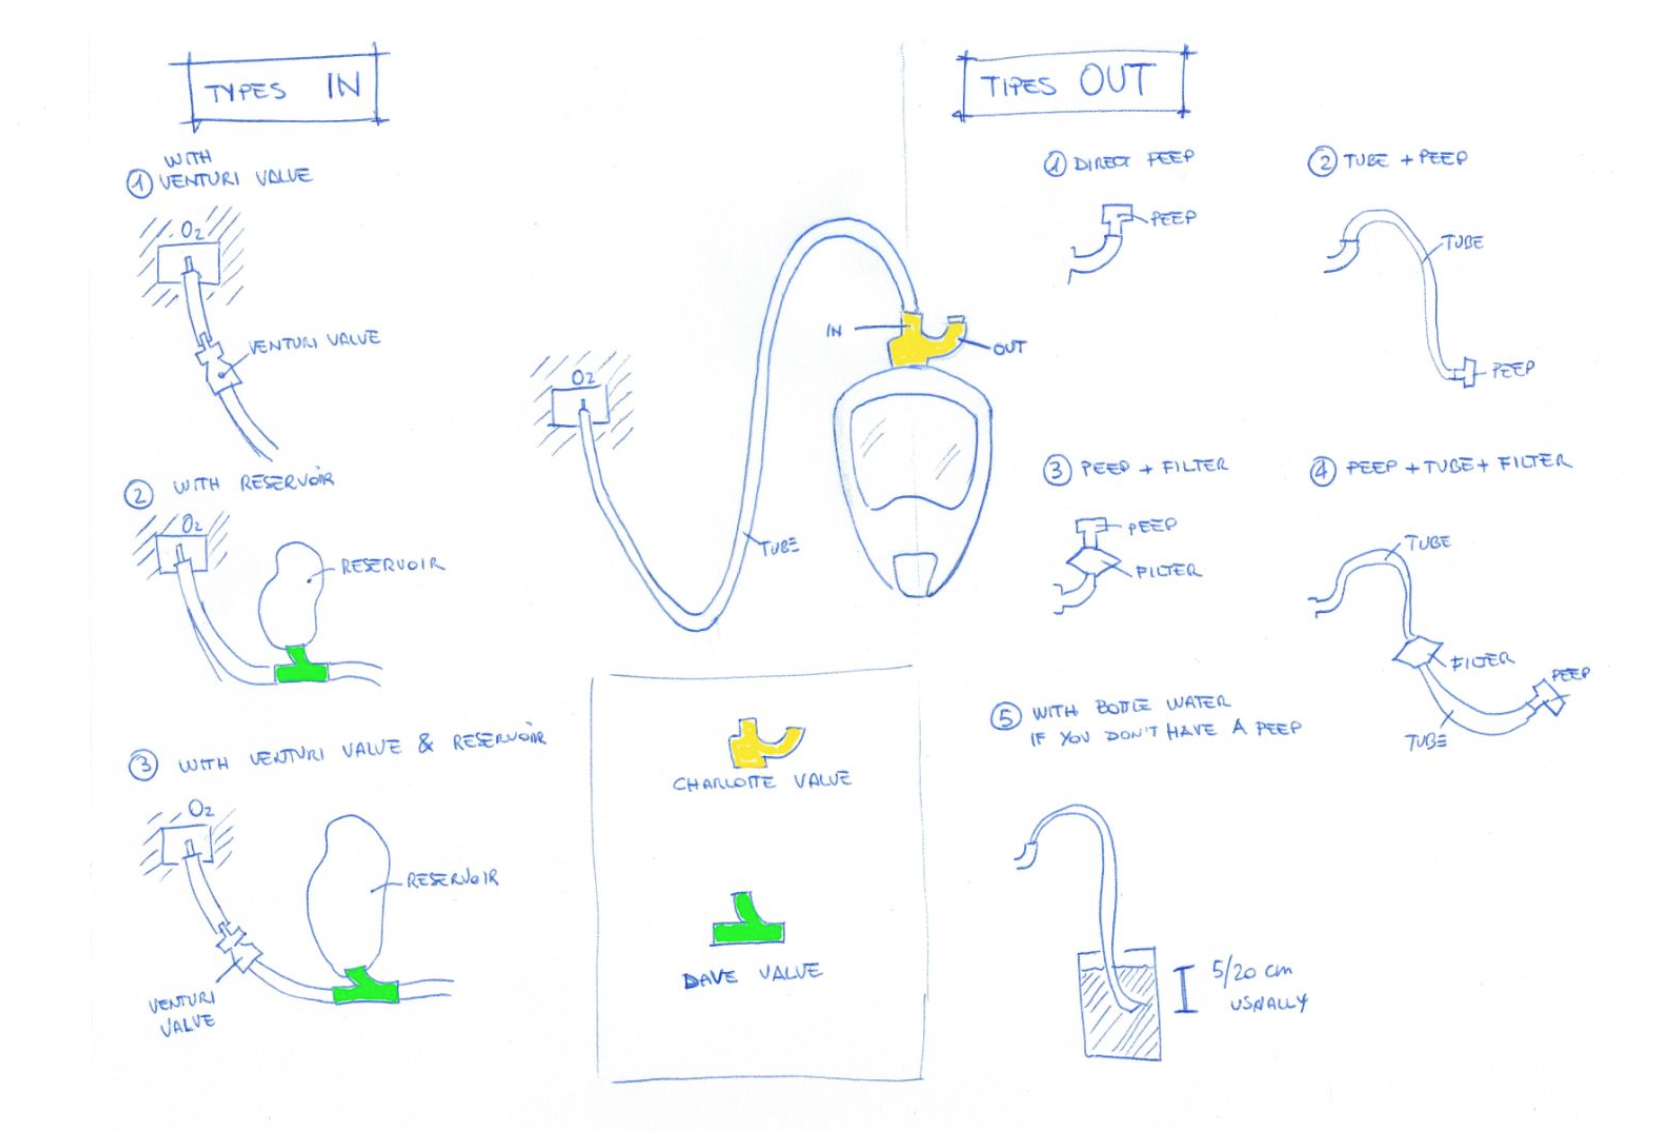 TYPES IN
① WITH
VENTURI VALVE
O2
VENTURI VALVE
② WITH RESERVOIR
O2
RESERVOIR
③ WITH VENTURI VALVE & RESERVOIR
O2
RESERVOIR
VENTURI
VALVE
O2
TUBE
IN
OUT
CHARLOTTE VALVE
DAVE VALVE
TIPES OUT
① DIRECT PEEP
PEEP
② TUBE + PEEP
TUBE
PEEP
③ PEEP + FILTER
PEEP
FILTER
④ PEEP + TUBE + FILTER
TUBE
FILTER
PEEP
TUBE
⑤ WITH BOTTLE WATER
IF YOU DON'T HAVE A PEEP
5/20 cm
USUALLY